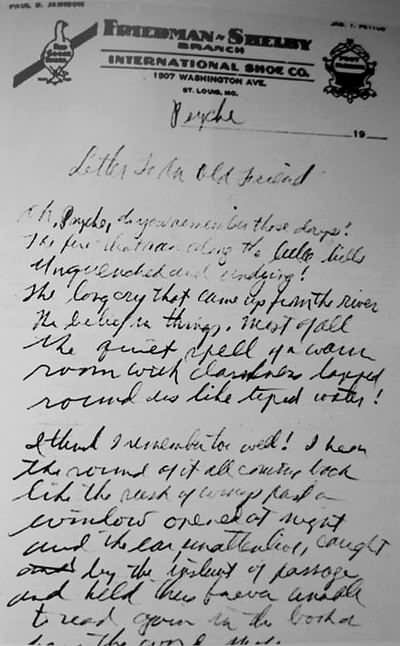 PAUL D. JAMISON
JAS. T. PETTUS
FRIEDMAN-SHELBY
BRANCH
INTERNATIONAL SHOE CO.
1507 WASHINGTON AVE.
ST. LOUIS, MO.
RED GOOSE SHOES
Psyche
19
Letter To An Old Friend
Oh, Psyche, do you remember those days!
The fire that ran along the hills
Unquenched and undying!
The long cry that came up from the river
The belief in things. Most of all
the quiet spell of a warm
room with darkness lapped
round us like tepid water!
I think I remember too well! I hear
the sound of it all coming back
like the rush of wings past a
window opened at night
and the ear unattentive, caught
by the instant of passage
and held thus forever unable
to read again in the book
the word